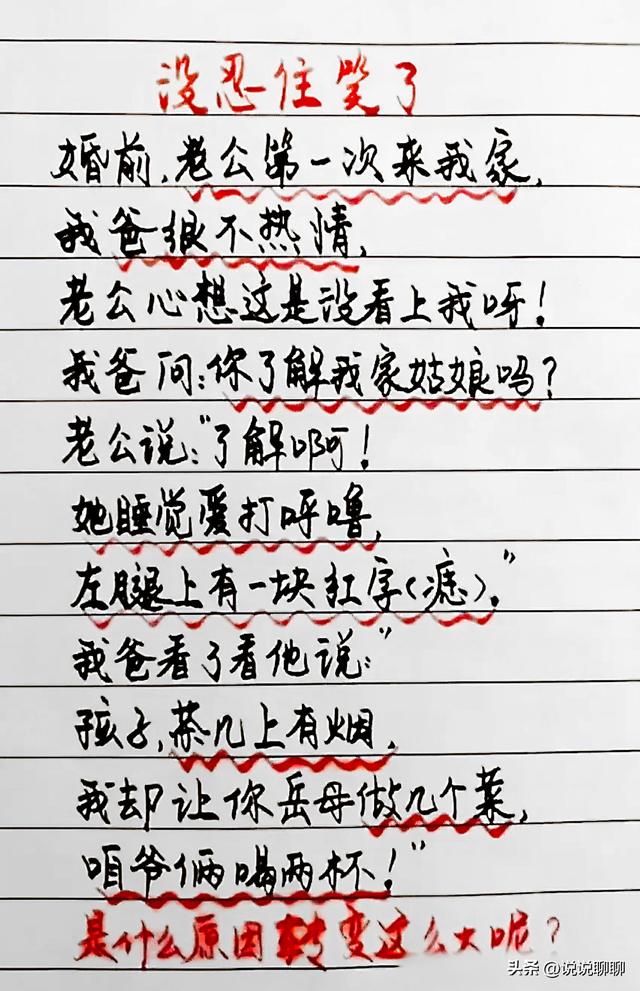 没忍住笑了
婚前,老公第一次来我家,
我爸很不热情,
老公心想这是没看上我呀!
我爸问:你了解我家姑娘吗?
老公说:"了解啊!
她睡觉爱打呼噜,
左腿上有一块红字(痣)。"
我爸看了看他说:"
孩子,茶几上有烟,
我却让你岳母做几个菜,
咱爷俩喝两杯!"
是什么原因转变这么大呢?
头条 @说说聊聊